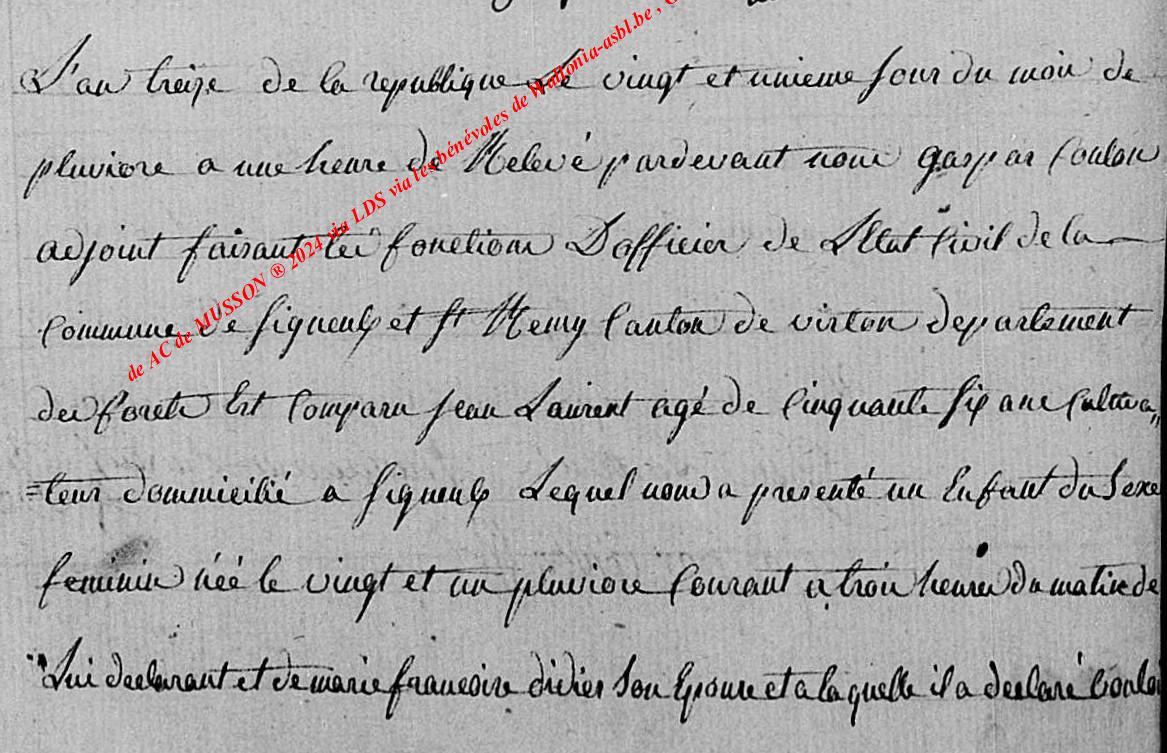 L'an treize de la republique Le vingt et unieme jour du mois de
pluviose a une heure de Relevé pardevant nous gaspar Coulon
adjoint faisant les fonctions D'officier de L'Etat Civil de la
Commune de Signeulx et St Remy Canton de virton departement
des forets Est Comparu jean Laurent agé de Cinquante six ans Cultiva„
=teur dommicilié a Signeulx Lequel nous a presenté un Enfant du Sexe
feminin néé le vingt et un pluviose Courant a trois heures du matin de
Lui declarant et de marie francoise didier Son Epouse et a laquelle il a declaré Vouloir
de AC de MUSSON ® 2024 via LDS via les bénévoles de Wallonia-asbl.be ,